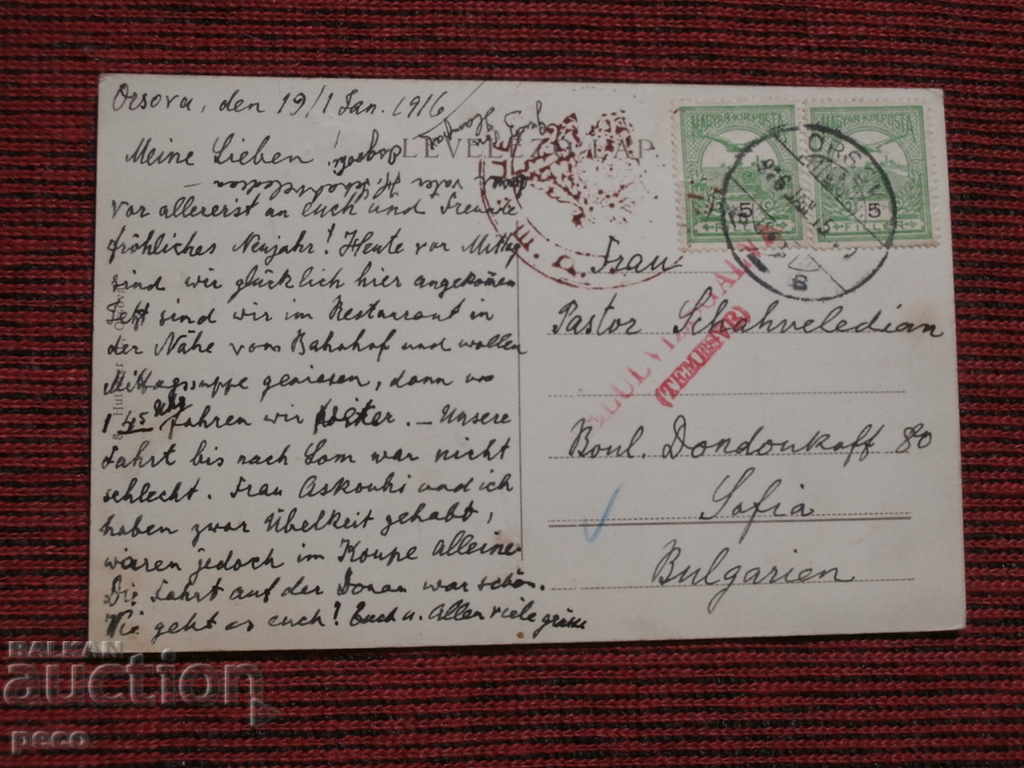 Orsova, den 19/1 Jan. 1916
Meine Lieben!
vor allererst an euch und Freunde
fröhliches Neujahr! Heute vor Mittag
sind wir glücklich hier angekommen
Jetzt sind wir im Restaurant in
der Nähe vom Bahnhof und wollen
Mittagssuppe geniesen, dann um
1 45 Uhr fahren wir weiter. — Unsere
Fahrt bis nach Lom war nicht
schlecht. Frau Askouhi und ich
haben zwar Übelkeit gehabt,
waren jedoch im Koupe alleine
Die Fahrt auf der Donau war schön.
Wie geht es euch? Euch u. Allen viele grüsse
LEVELEZŐ-LAP
MAGYAR KIR. POSTA
5 5
FILLÉR
MAGYAR KIR. POSTA
5
FILLÉR
ORSOVA
B
(TEMESVÁR)
Frau
Pastor Schahveledian
Boul. Dondoukoff 80
Sofia
Bulgarien
BALKAN
auction
peco